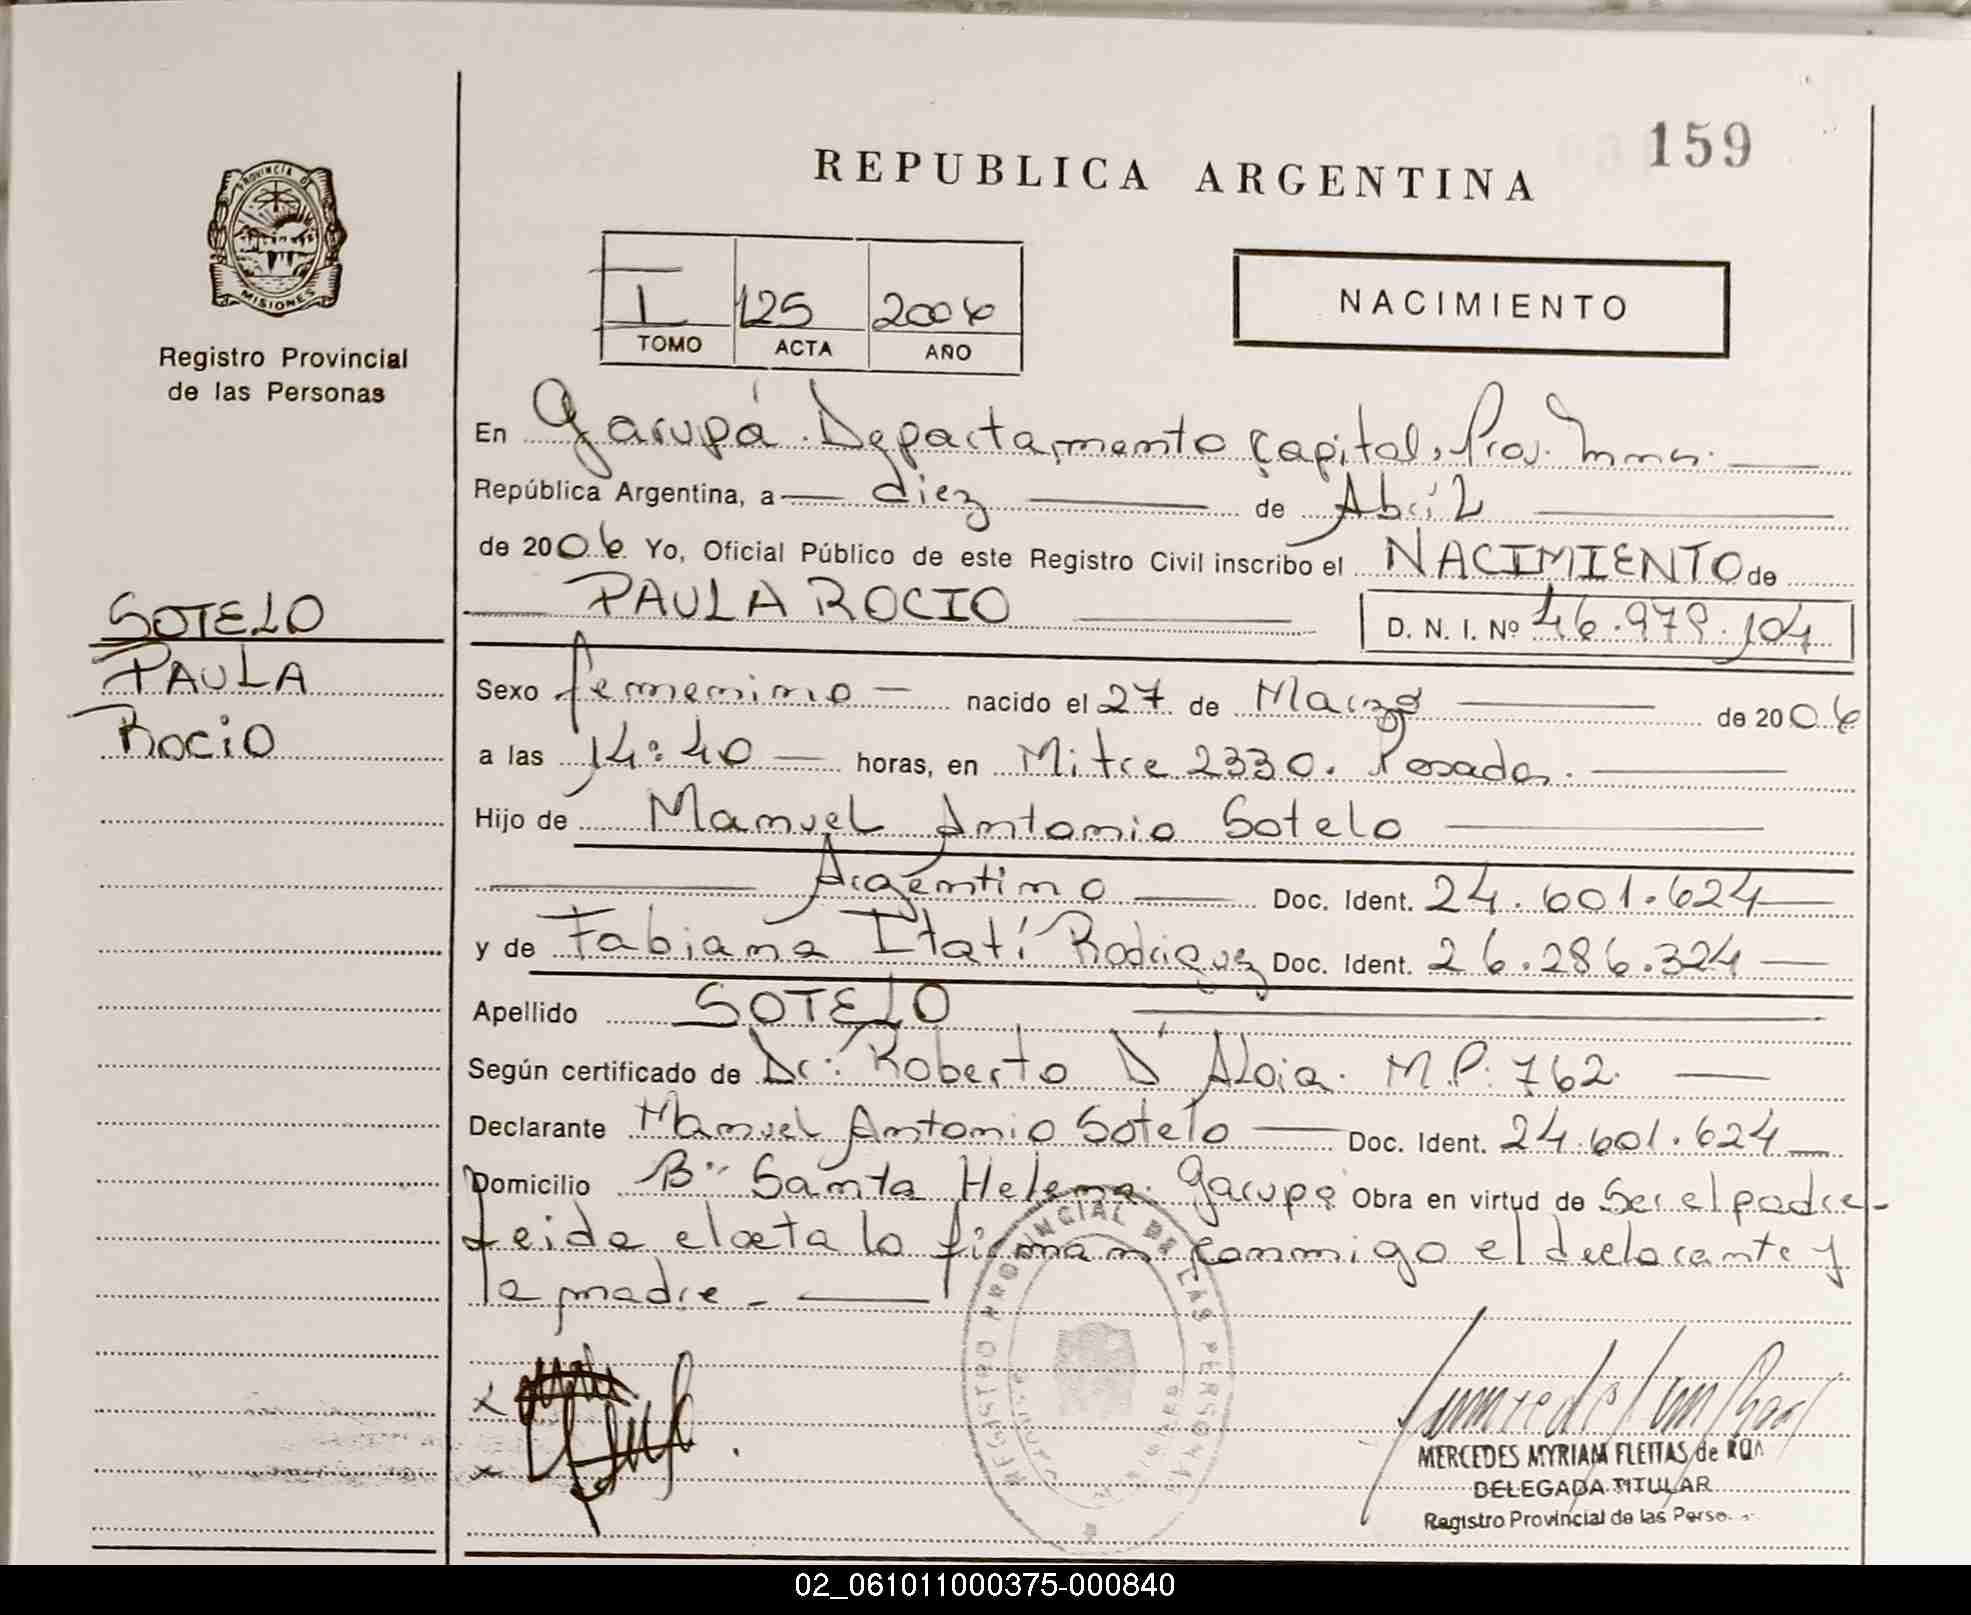 159
REPUBLICA ARGENTINA
PROVINCIA DE
MISIONES
Registro Provincial
de las Personas
I 125 2006
TOMO ACTA AÑO
NACIMIENTO
En Garupá. Departamento Capital, Prov. Mnes.
República Argentina, a diez de Abril
de 2006 Yo, Oficial Público de este Registro Civil inscribo el NACIMIENTO de
PAULA ROCIO D. N. I. Nº 46.979.104
SOTELO
PAULA
ROCIO
Sexo femenino nacido el 27 de Marzo de 2006
a las 14:40 horas, en Mitre 2330. Posadas.
Hijo de Manuel Antonio Sotelo
Argentino Doc. Ident. 24.601.624
y de Fabiana Itatí Rodriguez Doc. Ident. 26.286.324
Apellido SOTELO
Según certificado de Dr: Roberto D'Aloia. M.P. 762.
Declarante Manuel Antonio Sotelo Doc. Ident. 24.601.624
Domicilio Bº Santa Helena. Garupá Obra en virtud de Ser el padre-
Leida el acta la firman conmigo el declarante y
la madre.-
REGISTRO PROVINCIAL DE LAS PERSONAS
x
x
MERCEDES MYRIAM FLEITAS de ROA
DELEGADA TITULAR
Registro Provincial de las Perso
02_061011000375-000840